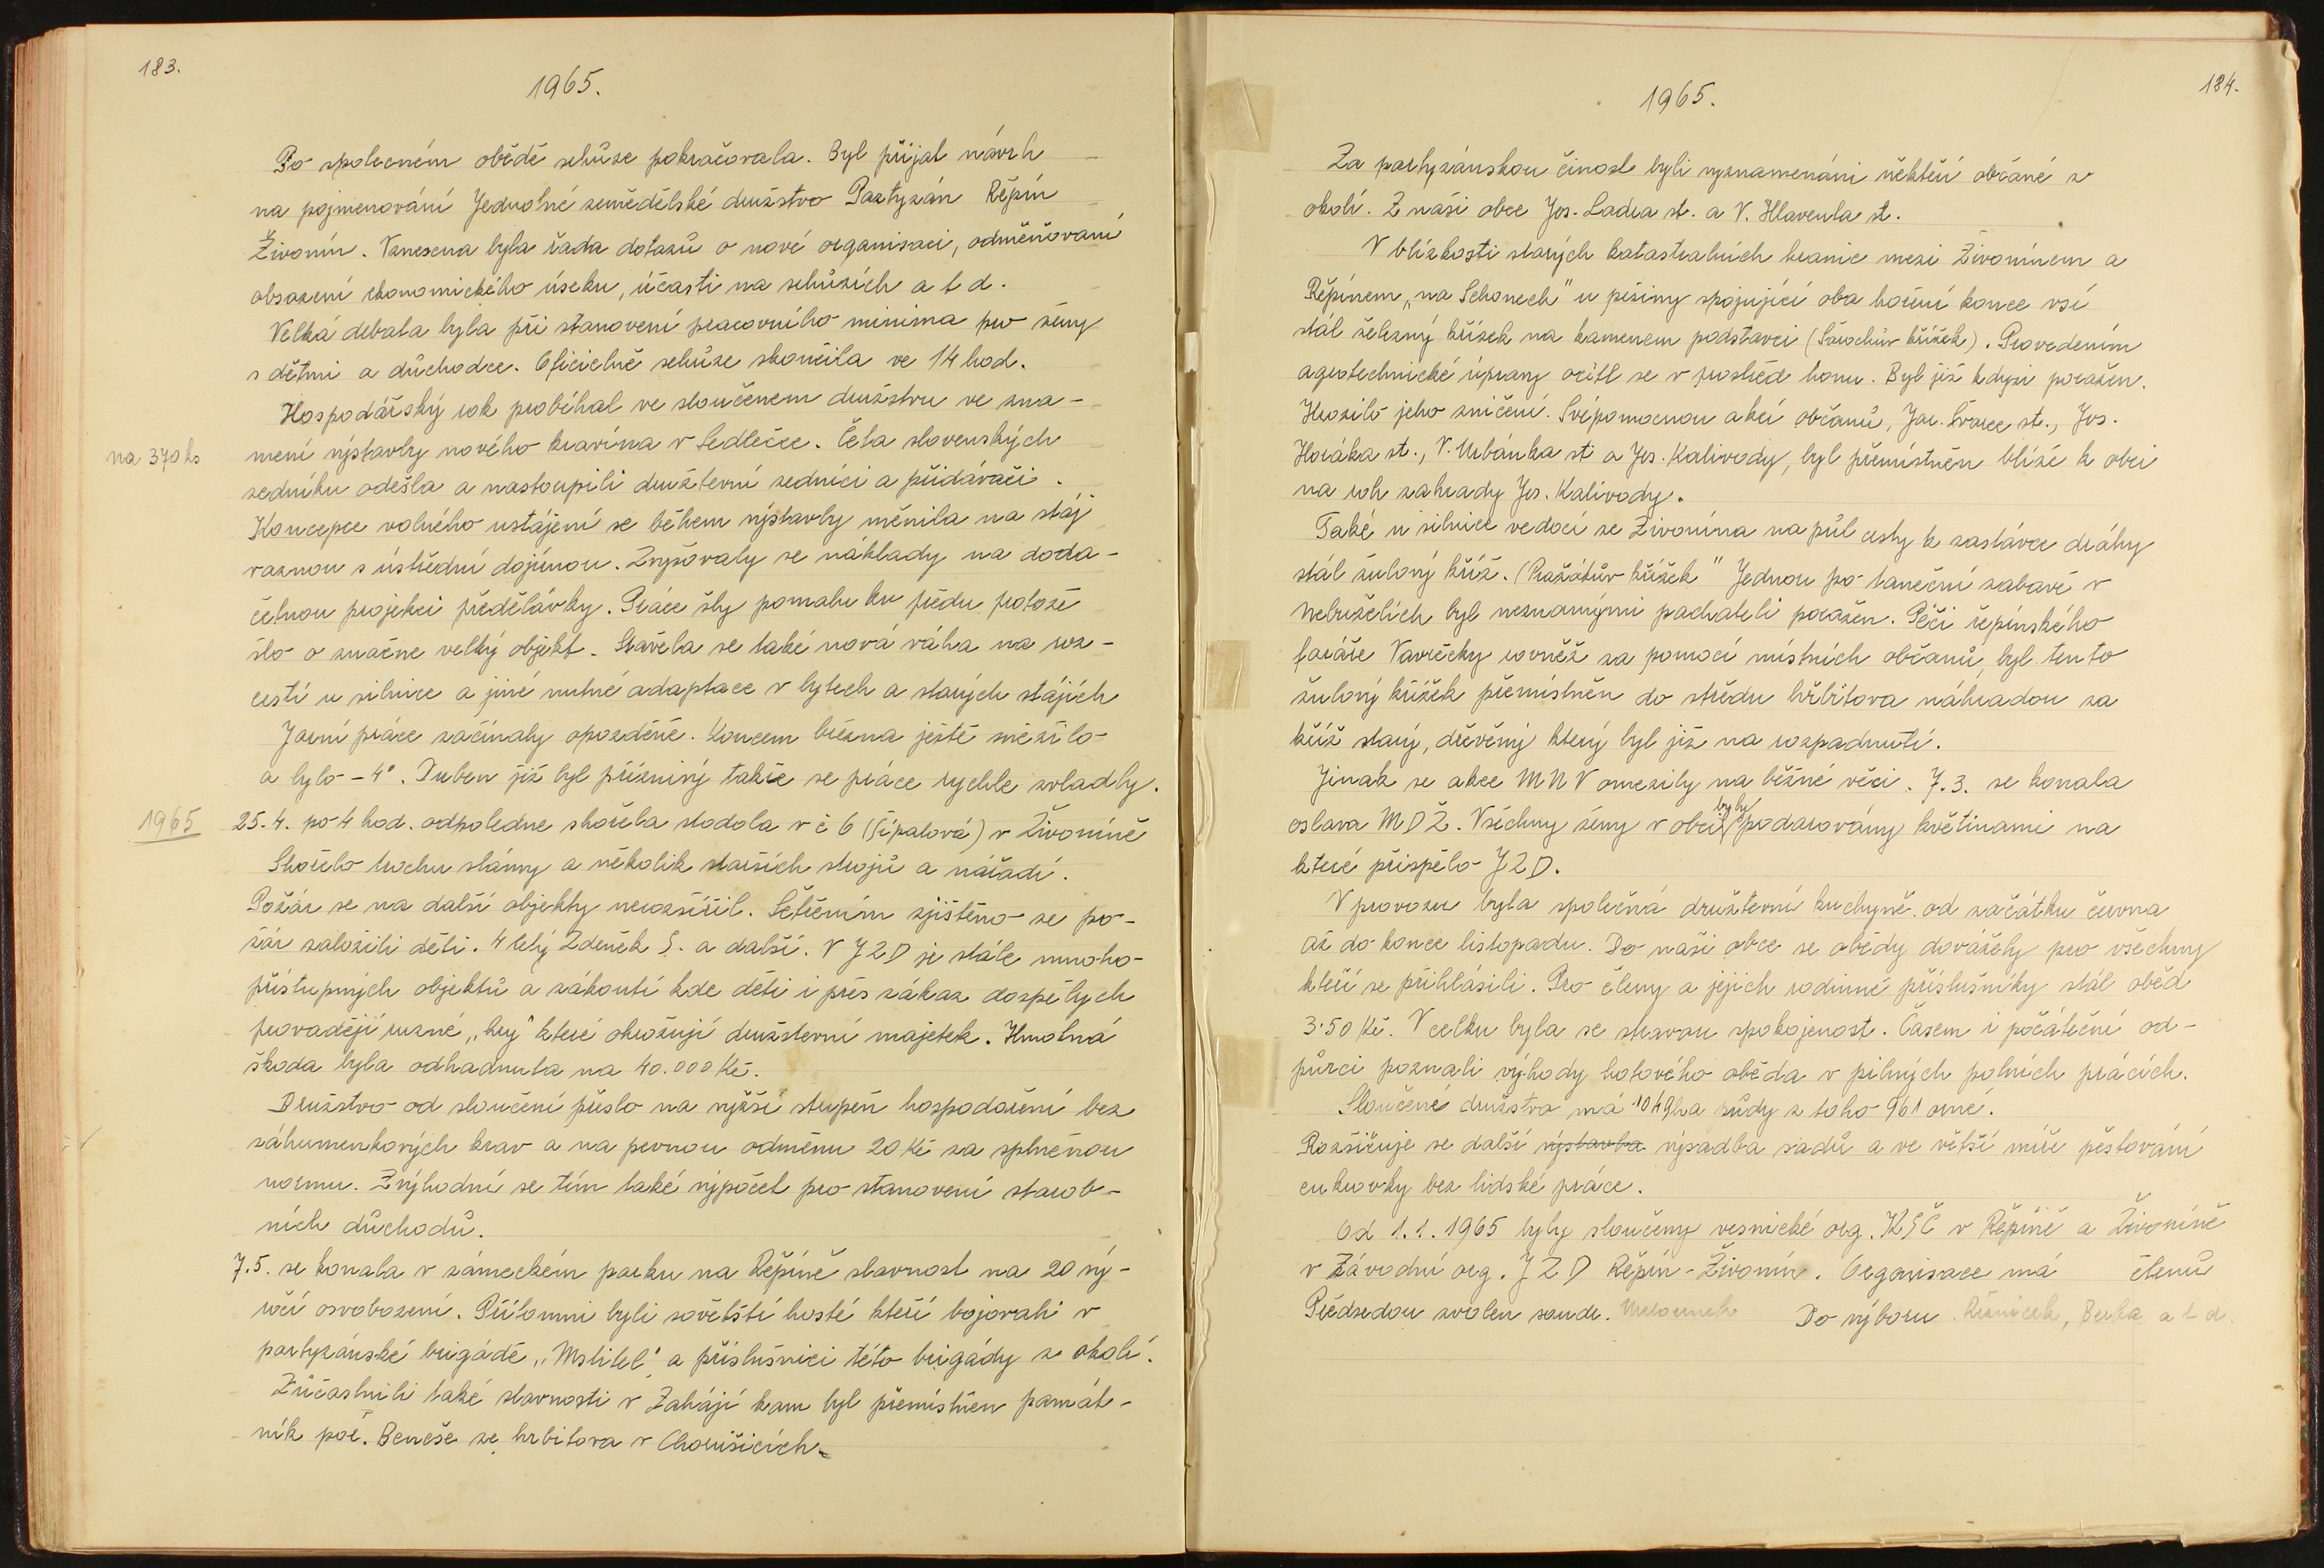 183.
1965.
Po společném obědě schůze pokračovala. Byl přijat návrh
na pojmenování Jednotné zemědělské družstvo Partyzán Řepín
Živonín. Vznesena byla řada dotazů o nové organisaci, odměňovaní
obsazení ekonomického úseku, účasti na schůzích a t d.
Velká debata byla při stanovení pracovního minima pro ženy
s dětmi a důchodce. Oficielně schůze skončila ve 14 hod.
Hospodářský rok probíhal ve sloučenem družstvu ve zna-
na 370 ks
mení výstavby nového kravína v Sedlečce. Četa slovenských
zedníku odešla a nastoupili družtevní zedníci a přidávači.
Koncepce volného ustájení se během výstavby měnila na stáj
vaznou s ústřední dojírnou. Zvyšovaly se náklady na doda-
četnou projekci předělávky. Práce šly pomalu ku předu protože
šlo o značne velký objekt. Stavěla se také nová váha na roz-
cestí u silnice a jiné nutné adaptace v bytech a starých stájích
Jarní práce začínaly opozděně. Koncem března ještě sněžilo
a bylo -4°. Duben již byl příznivý takže se práce rychle zvladly.
1965
25.4. po 4 hod. odpoledne shořela stodola v č 6 (Šípalová) v Živoníně
Shořelo trochu slámy a několik starších strojů a nářadí.
Požár se na další objekty nerozšířil. Šetřením zjištěno že po-
žár založili děti. 4 letý Zdeněk Š. a další. V JZD je stále mnoho
přístupných objektů a zákoutí kde děti i přes zákaz dospělých
provadějí ruzné „hry" které ohrožují družstevní majetek. Hmotná
škoda byla odhadnuta na 40.000 Kč.
Družstvo od sloučení přešlo na vyšší stupeň hospodaření bez
záhumenkových krav a na pevnou odměnu 20 Kč za splněnou
normu. Zvýhodní se tím také výpočet pro stanovení starob-
ních důchodů.
7.5. se konala v zámeckém parku na Řepíně slavnost na 20 vý-
ročí osvobození. Přítomni byli sovětští hosté kteří bojovali v
partyzánské brigádě „Mstitel" a příslušníci této brigády z okolí.
Zůčastnili také slavnosti v Zahájí kam byl přemístněn památ-
ník poř. Beneše ze hrbitova v Chorušicích.
184.
1965.
Za partyzánskou činost byli vyznamenáni někteří občané z
okolí. Z naši obce Jos. Ladra st. a V. Hlavenla st.
V blízkosti starých katastralních hranic mezi Živonínem a
Řepínem „na Schonech" u pěšiny spojující oba horení konce vsí
stál železný křížek na kamenem podstavci (Šorochův křížek). Provedením
agrotechnické úpravy ocitl se v prostřed honu. Byl již kdysi poražen.
Hrozilo jeho zničení. Svépomocnou akcí občanů, Jar. Švarce st., Jos.
Horáka st., V. Urbánka st a Jos. Kalivody, byl přemístněn blíže k obci
na roh zahrady Jos. Kalivody.
Také u silnice vedocí ze Živonína na půl cesty k zastávce dráhy
stál žulový kříž. (Pražákův křížek" Jednou po taneční zabavě v
Nebuželích byl neznamými pachateli poražen. Péčí řepínského
faráře Vavrečky rovněž za pomoci místních občanů, byl tento
žulový křížek přemístněn do středu hřbitova náhradou za
kříž starý, dřevěný který byl již na rozpadnutí.
Jinak se akce MNV omezily na běžné věci. 7.3. se konala
oslava MDŽ. Všechny ženy v obci byly podarovány květinami na
které přispělo JZD.
V provozu byla společná družtevní kuchyně od začátku června
až do konce listopadu. Do naši obce se obědy dovážely pro všechny
kteří se přihlásili. Pro členy a jejich rodinné příslušníky stál oběd
3·50 Kč. V celku byla se stravou spokojenost. Časem i počáteční od-
půrci poznali výhody hotového oběda v pilných polních prácích.
Sloučené družstvo má 1049 ha půdy z toho 961 orné.
Rozšiřuje se další výstavba výsadba sadů a ve větší míře pěstování
cukrovky bez lidské práce.
Od 1.1.1965 byly sloučeny vesnické org. KSČ v Řepíně a Živoníně
v Závodní org. JZD Řepín-Živonín. Organisace má členů
Předsedou zvolen soudr. Do výboru Řezníček, a t d.